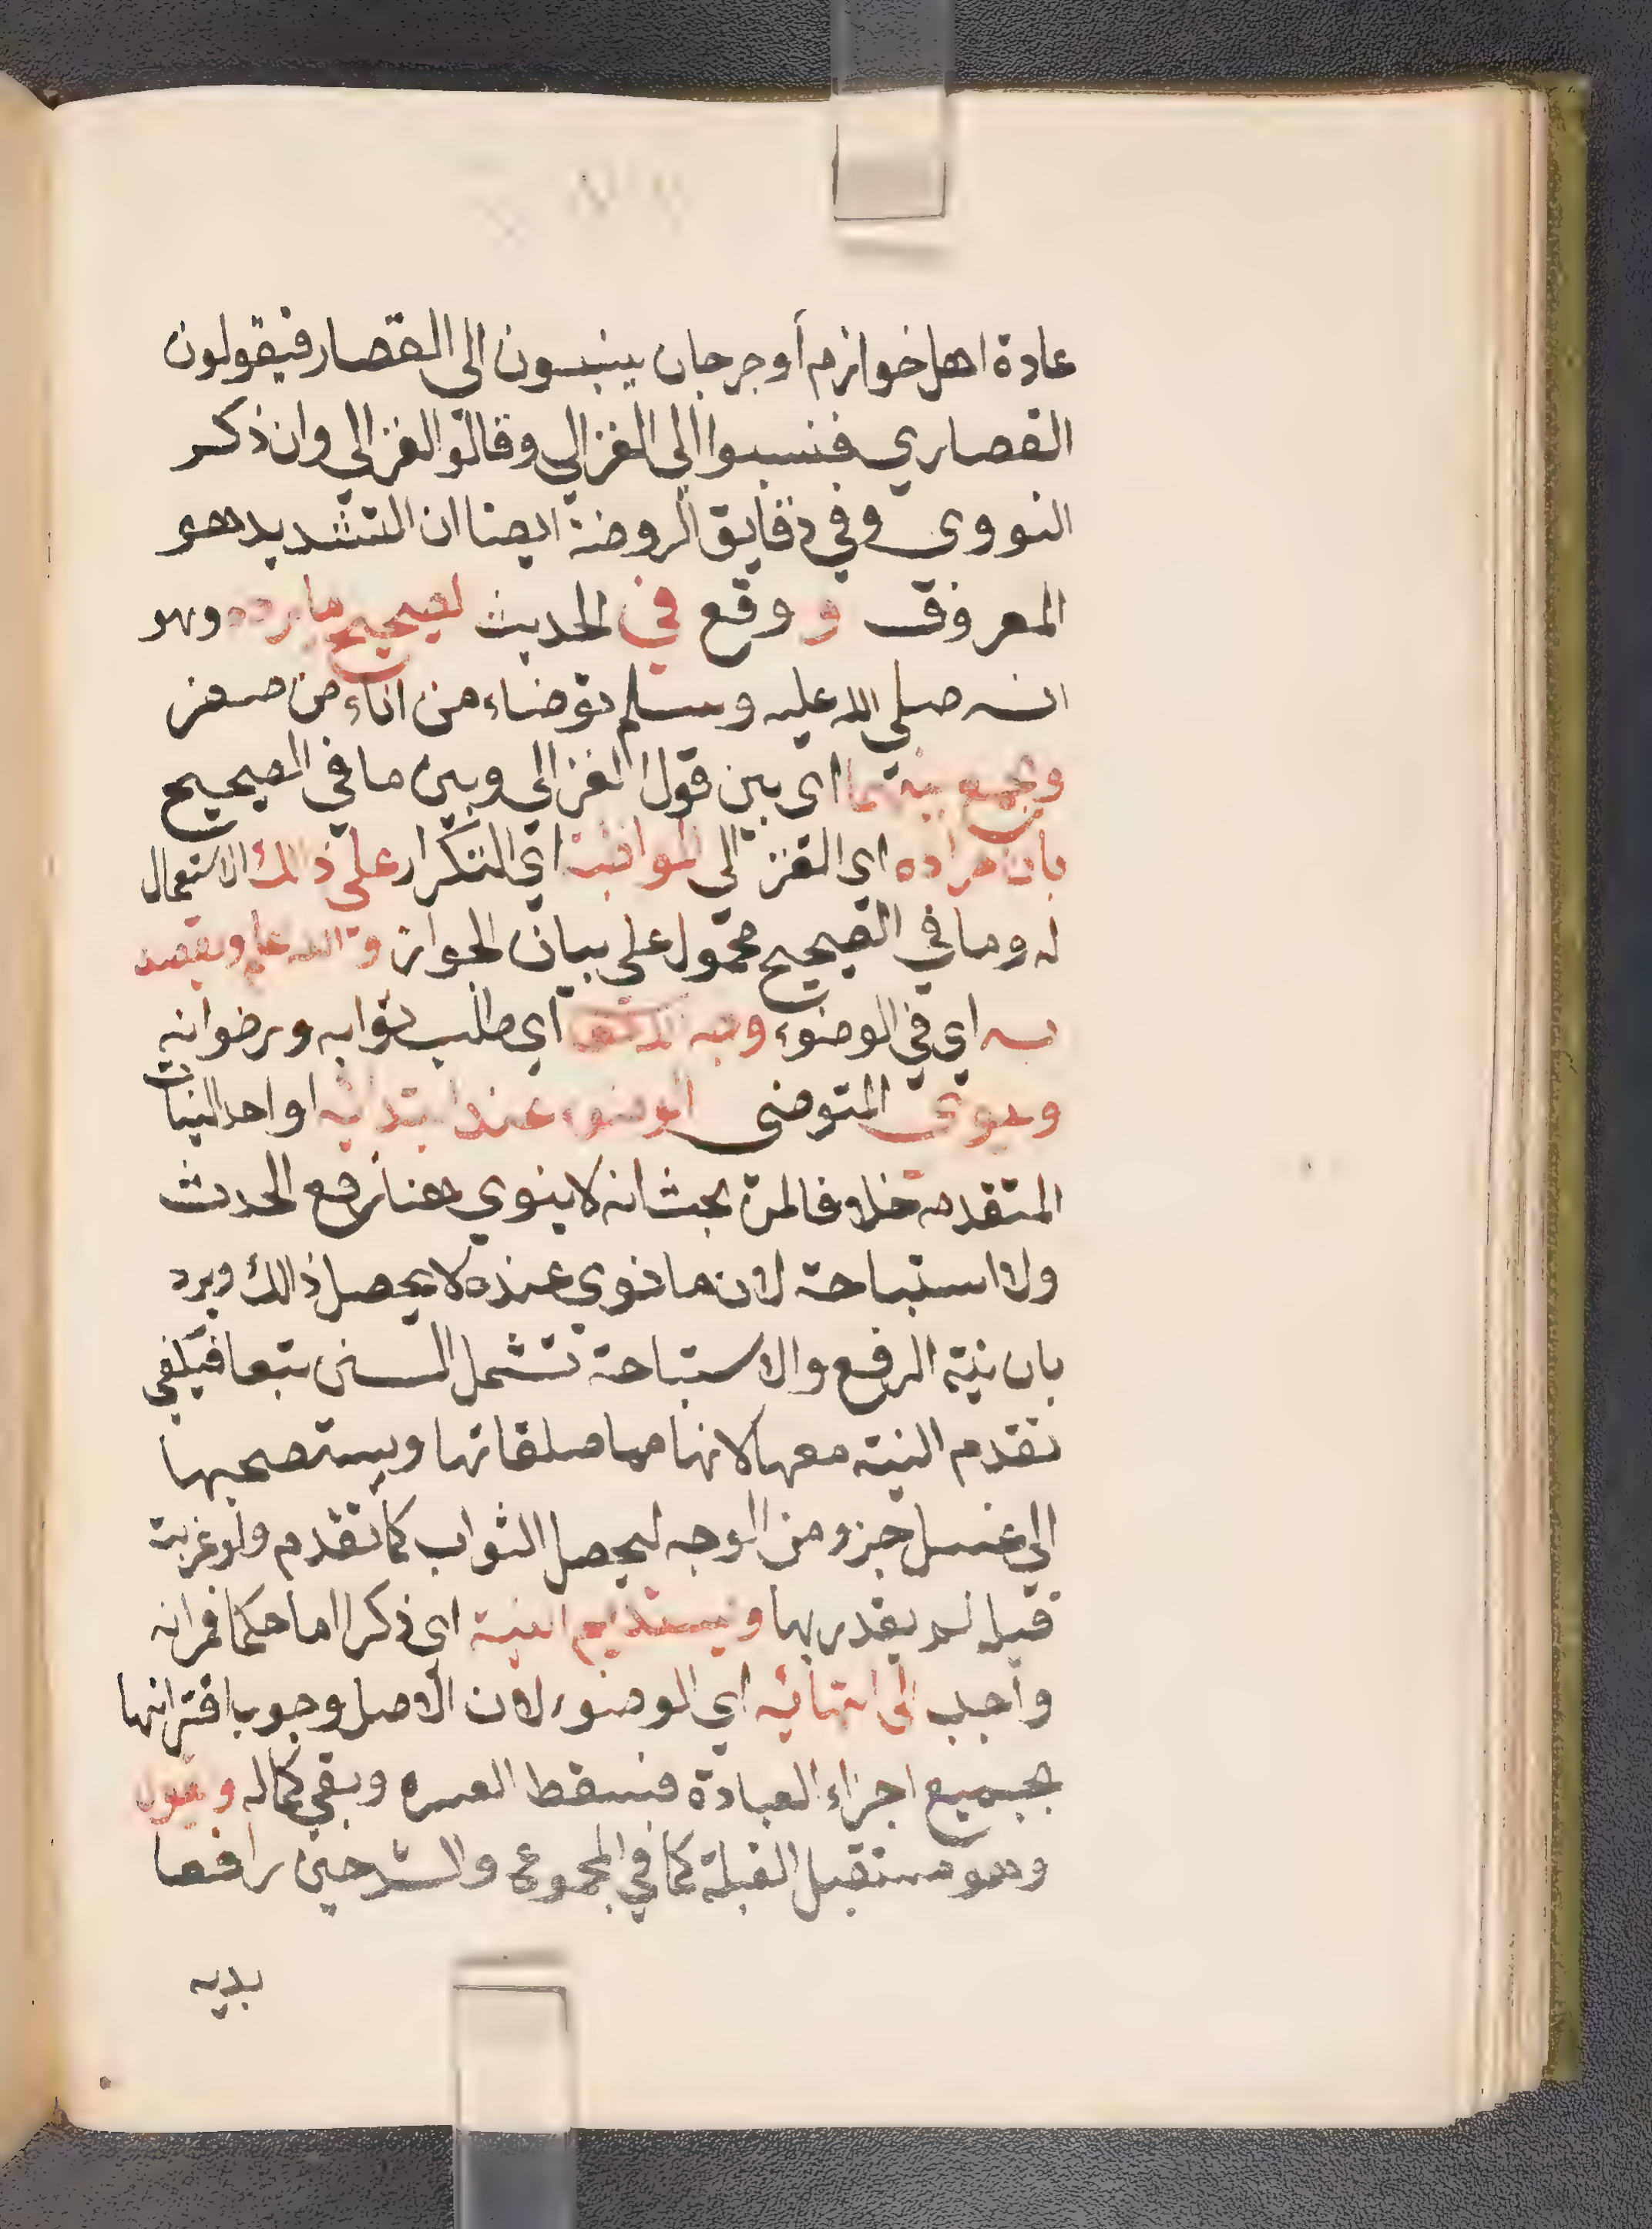 عادة اهل خوازم أو جرجان ينسبون الى القصار فيقولون
القصاري فنسبوا الى الغزالي وقالو الغزالي وان ذكر
النووي وفي دقايق الروضة ايضا ان التشديد هو
المعروف و وقع في الحديث لصحيح ما يرده وهو
انه صلي الله عليه وسلم توضاء من اناء من صفر
ويجمع بينهما اى بين قول الغزالي وبين ما في الصحيح
بان مراده اى الغزالي المواظبة اي التكرار على ذالك الاستعمال
له وما في الصحيح محمول على بيان الجواز والله اعلم ويقصد
به اي في الوضوء وجه الله اي طلب ثوابه ورضوانه
وينوي المتوضى الوضوء عند ابتدائه او احد النيات
المتقدمه خلافا لمن بحث انه لا ينوي هنا رفع الحدث
ولا استباحة لان ما نوي عنده لا يحصل ذالك ويرد
بان نية الرفع والاستباحة تشمل السنن تبعا فيكفى
تقدم النية معها لانها من متعلقاتها ويستصحبها
الى غسل جزو من الوجه ليحصل الثواب كما تقدم ولو عزبت
قبل لم يعتد بها ويستديم النية اى ذكرا اما حكما فمرانه
واجب الى انتهائه اي الوضوء لان الاصل وجوب اقترانها
بجميع اجزاء العبادة فسقط لعسره وبقي كماله ويقول
وهو مستقبل القبلة كما في المجموع والشرحين رافعا
يديه